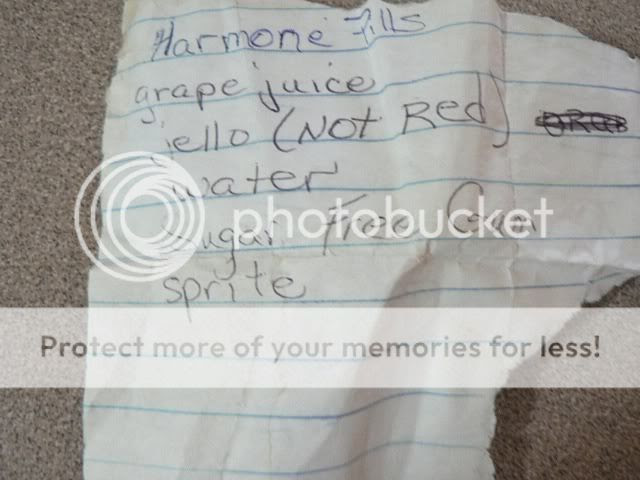 Harmone Pills
grape juice
jello (NOT Red)
water
sugar Free Gum
sprite
photobucket
Protect more of your memories for less!